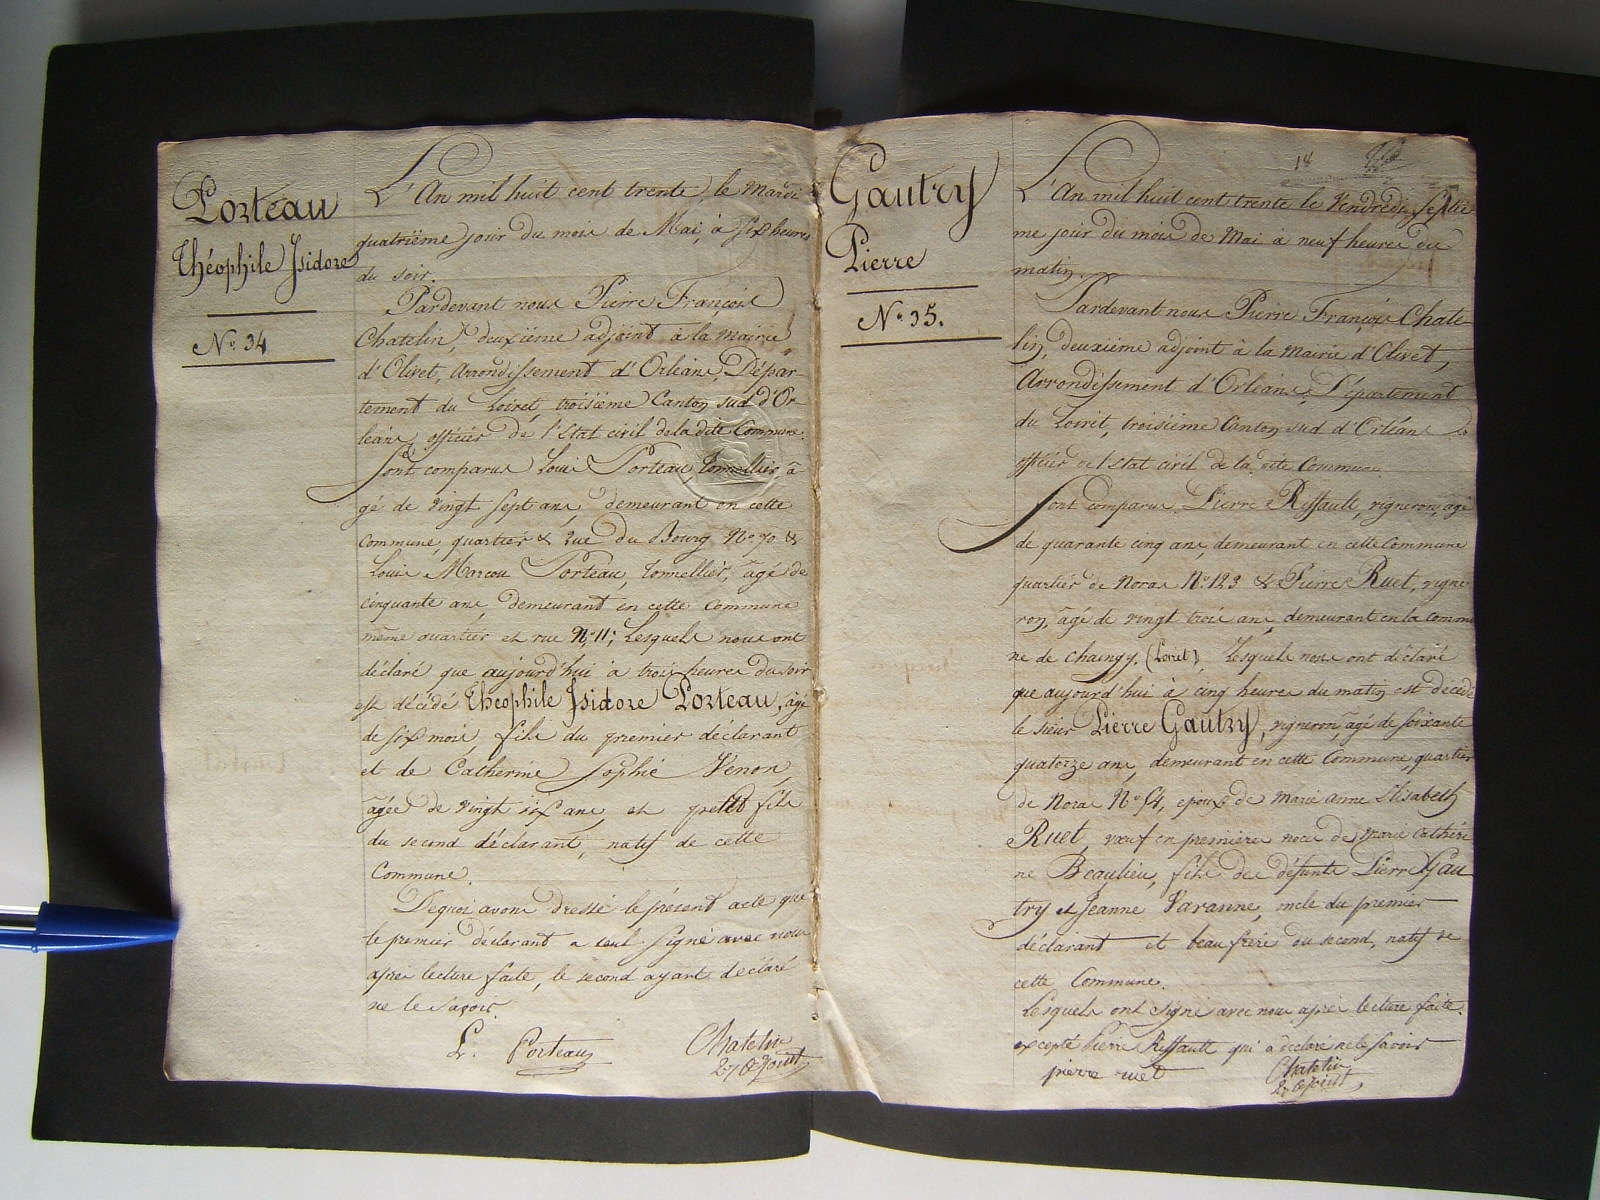 Porteau
Théophile Isidore
N.° 34
L'An mil huit cent trente, le mardi
quatrième jour du mois de Mai, à six heures
du soir.
Pardevant nous Pierre François
Chatelin, deuxième adjoint à la mairie
d'Olivet, Arrondissement d'Orléans, Dépar-
tement du Loiret, troisième Canton sud d'Or-
léans, officier de l'Etat civil de la dite Commune.
Sont comparus Louis Porteau, tonnellier, â
gé de vingt sept ans, demeurant en cette
commune, quartier & rue du Bourg N.° 70 &
Louis Marcou Porteau, tonnellier, âgé de
cinquante ans, demeurant en cette commune
même quartier et rue N.° 11; Lesquels nous ont
déclaré que aujourd'hui à trois heures du soir
est décédé Théophile Isidore Porteau, âgé
de six mois, fils du premier déclarant
et de Catherine Sophie Venon,
âgée de vingt six ans, et petit fils
du second déclarant, natif de cette
Commune.
De quoi avons dressé le présent acte que
le premier déclarant a seul signé avec nous
après lecture faite, le second ayant déclaré
ne le savoir.
L. Porteau
Chatelin
Gautry
Pierre
N.° 35.
14
L'An mil huit cent trente le Vendredi, septiè
me jour du mois de Mai à neuf heures du
matin.
Pardevant nous Pierre François Chate-
lin, deuxième adjoint à la Mairie d'Olivet,
Arrondissement d'Orléans, Département
du Loiret, troisième Canton sud d'Orléans
officier de l'état civil de la dite Commune.
Sont comparus, Pierre Riffault, vigneron, âgé
de quarante cinq ans demeurant en cette Commune
quartier de Noras N.° 123 & Pierre Ruet, vigne
ron, âgé de vingt trois ans, demeurant en la commu
ne de Chaingy, (Loiret), Lesquels nous ont déclaré
que aujourd'hui à cinq heures du matin est décédé
le sieur Pierre Gautry, vigneron, âgé de soixante
quatorze ans, demeurant en cette Commune, quartier
de Noras N.° 54, epoux de Marie Anne Elisabeth
Ruet, vœuf en première noce de Marie Cathéri
ne Beaulieu, fils de défunts Pierre Gau
try et Jeanne Varanne, oncle du premier
déclarant et beau frère du second, natif de
cette Commune.
Lesquels ont signé avec nous après lecture faite.
excepté Pierre Riffault qui a déclaré ne le savoir
pierre ruet
Chatelin